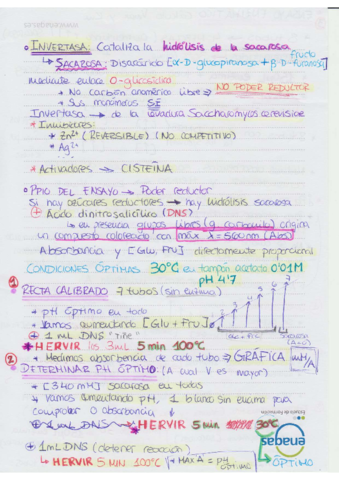 INVERTASA: Cataliza la hidrólisis de la sacarosa
↳ SACAROSA: Disacárido [α-D-glucopiranosa + β-D-fructofuranosa]
mediante enlace O-glucosídico
↳ No carbón anomérico libre → NO PODER REDUCTOR
↳ Sus monómeros SÍ
Invertasa → de la levadura Saccharomyces cerevisiae
* Inhibidores:
→ Zn²⁺ (REVERSIBLE) (NO COMPETITIVO)
→ Ag²⁺
* Activadores → CISTEÍNA
PPIO DEL ENSAYO → Poder reductor
Si hay azúcares reductores → hay hidrólisis sacarosa
⊕ Ácido dinitrosalicílico (DNS)
↳ en presencia grupos libres (g. carbonilo) origina
un compuesto coloreado con máx λ = 560nm (A560)
Absorbancia y [Glu, Fru] directamente proporcional
CONDICIONES ÓPTIMAS 30ºC en tampón acetato 0'01M
pH 4'7
① RECTA CALIBRADO 7 tubos (sin enzima)
→ pH óptimo en todo
→ Vamos aumentando [Glu + Fru]
⊕ 1 mL DNS
* HERVIR los 3mL 5 min 100ºC
* Medimos absorbencia de cada tubo → GRÁFICA
② DETERMINAR PH ÓPTIMO: (A cual V es mayor)
→ [340 mM] sacarosa en todos
→ Vamos aumentando pH, 1 blanco sin enzima para
comparar 0 absorbancia
⊕ 1 mL DNS → HERVIR 5 min 30ºC
⊕ 1mL DNS (detener reacción)
↳ HERVIR 5 MIN 100ºC
* MAX A = pH ÓPTIMO
enagas
ÓPTIMO